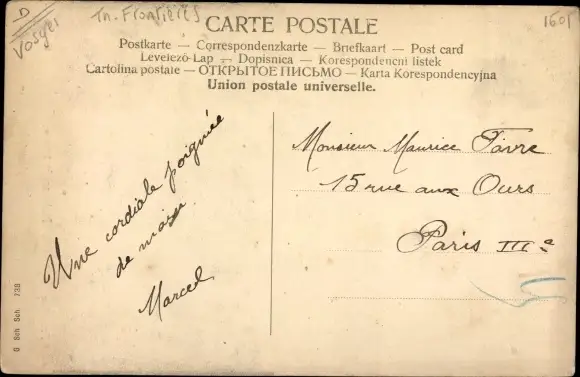 D
Vosges
Tn. Frontières
1601
CARTE POSTALE
Postkarte — Correspondenzkarte — Briefkaart — Post card
Levelező-Lap — Dopisnica — Korespondencni listek
Cartolina postale — ОТКРЫТОЕ ПИСЬМО — Karta Korespondencyjna
Union postale universelle.
Une cordiale poignée
de main
Marcel
Monsieur Maurice Favre
15 rue aux Ours
Paris IIIe
G Sch Sch 739